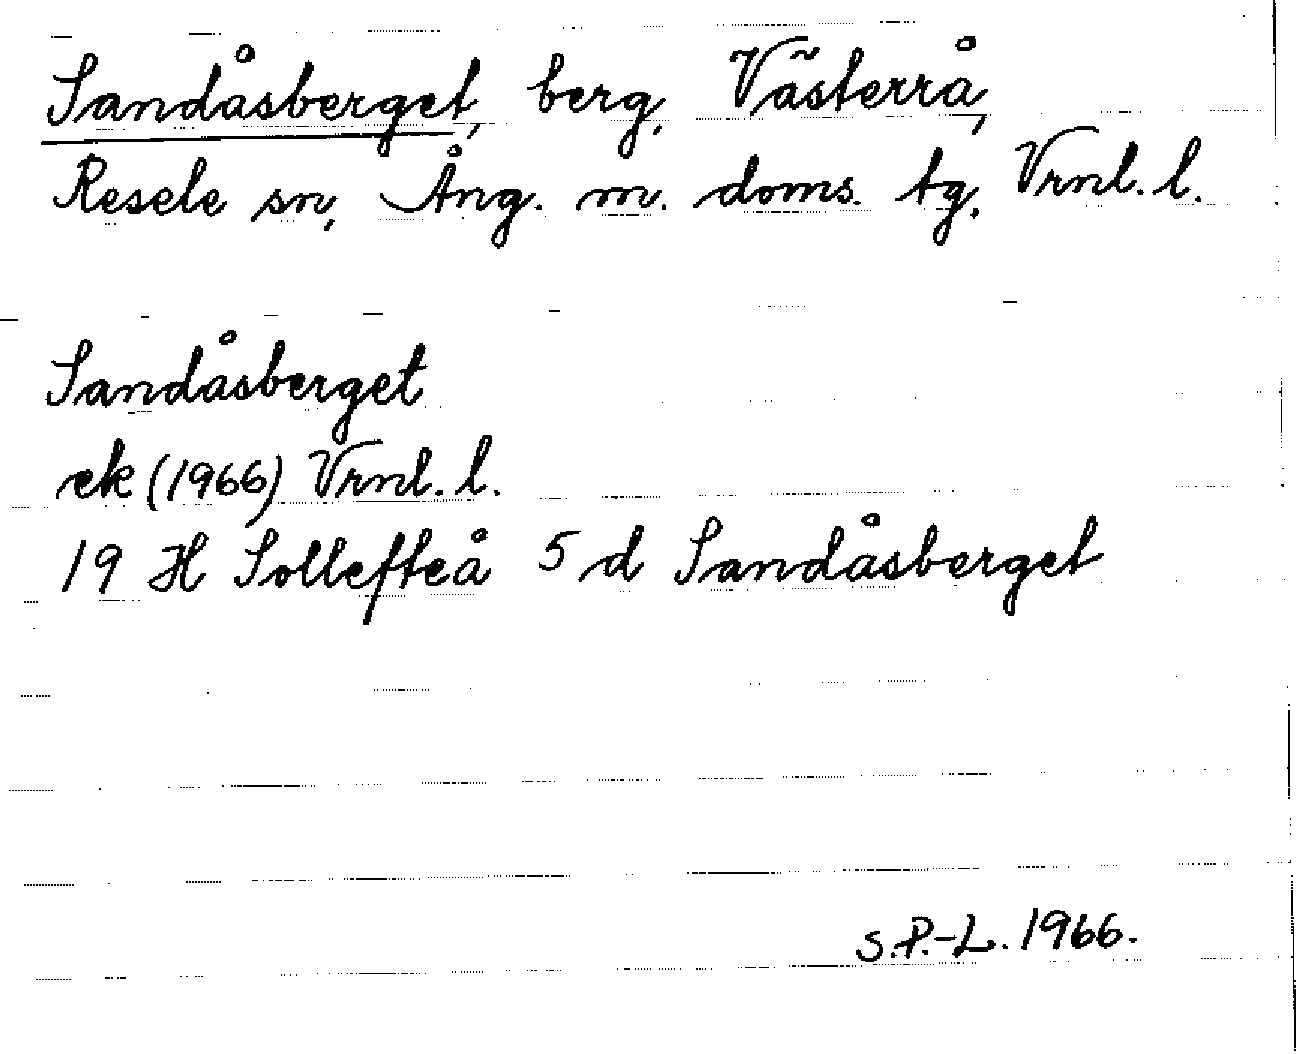 Sandåsberget, berg, Västerrå,
Resele sn, Ång. m. doms. tg, Vrnl. l.
Sandåsberget
ek (1966) Vrnl. l.
19 H Sollefteå 5 d Sandåsberget
S.P.-L. 1966.